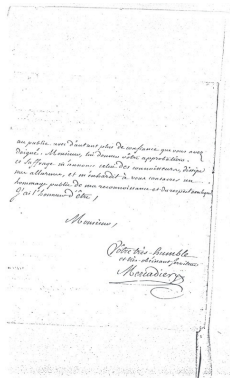 au public avec d'autant plus de confiance que vous avez
daigné, Monsieur, lui donner vôtre approbation.
ce suffrage m'annonce celui des connoisseurs, dissipe
mes allarmes, et m'enhardit à vous consacrer un
hommage public de ma reconnoissance et du respect avec lequel
J'ai l'honneur d'être,
Monsieur,
Vôtre très-humble
et très-obéissant serviteur